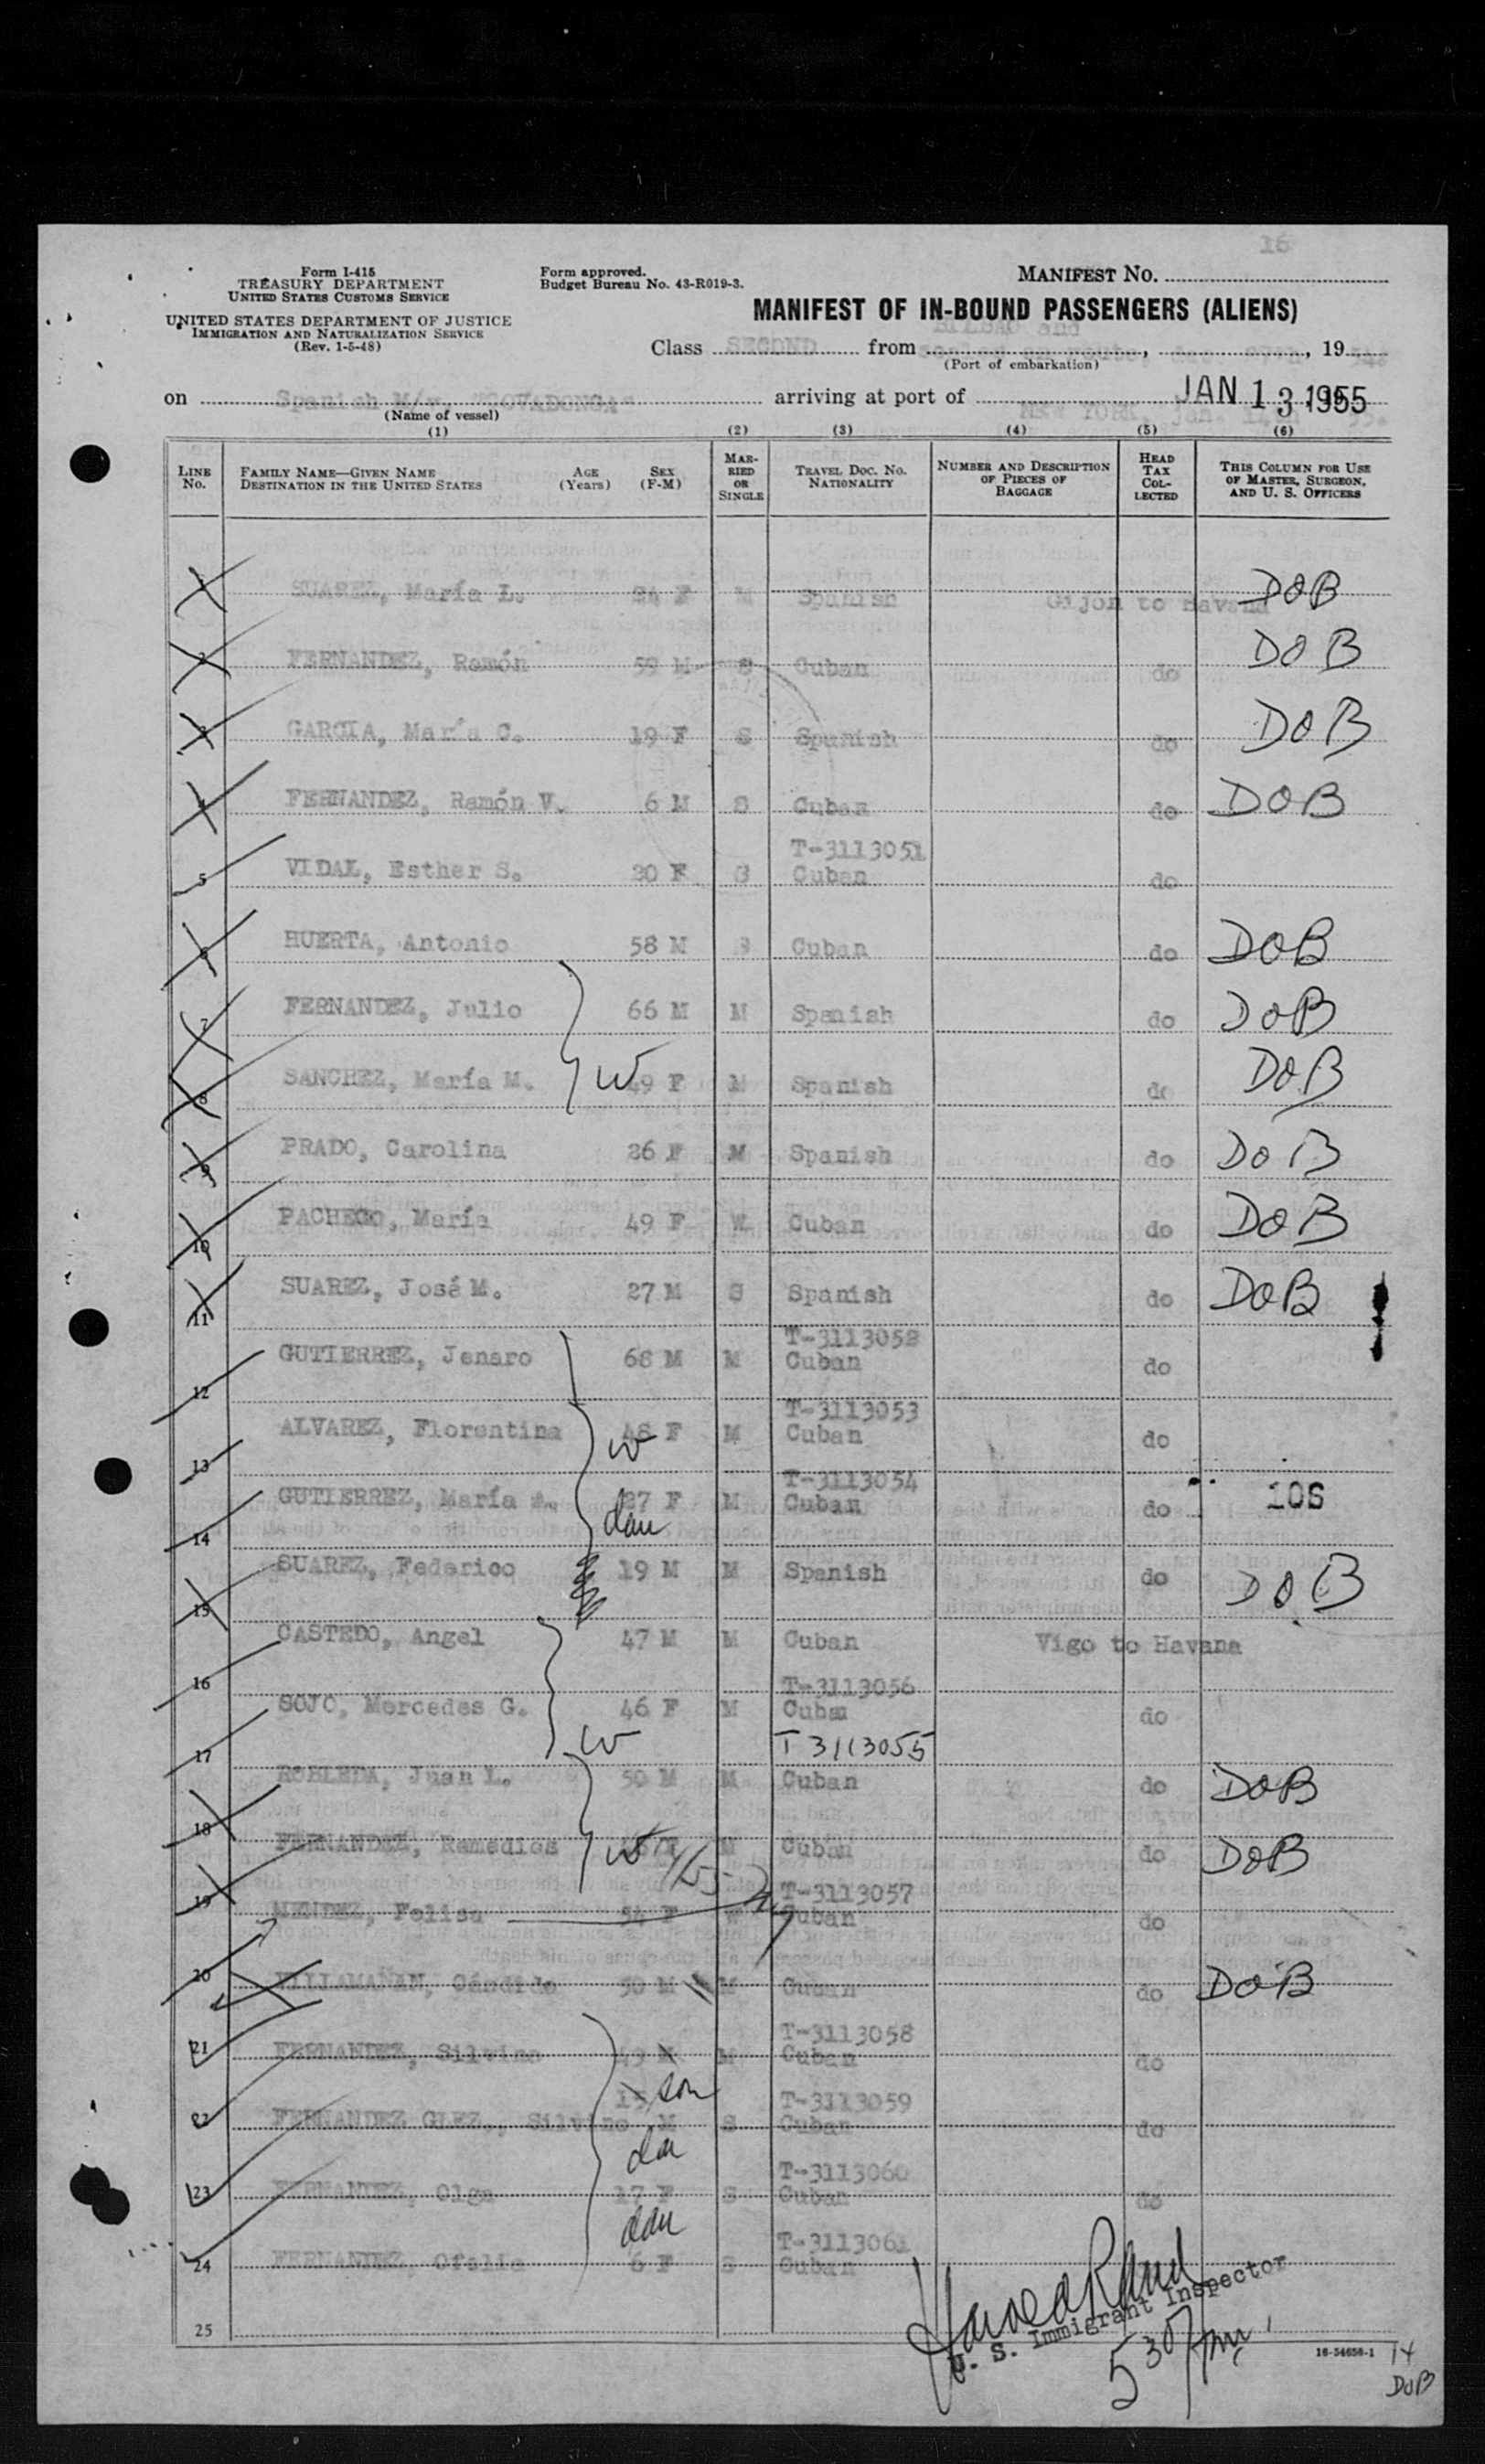 16
Form I-415
TREASURY DEPARTMENT
UNITED STATES CUSTOMS SERVICE
UNITED STATES DEPARTMENT OF JUSTICE
IMMIGRATION AND NATURALIZATION SERVICE
(Rev. 1-5-48)
Form approved.
Budget Bureau No. 43-R019-3.
MANIFEST NO.
MANIFEST OF IN-BOUND PASSENGERS (ALIENS)
BILBAO and
Class SECOND from , , 19 54.
(Port of embarkation)
on Spanish M/v. "COVADONGA" arriving at port of JAN 13 1955
(Name of vessel) NEW YORK, Jan.
(1) (2) (3) (4) (5) (6)
LINE No. FAMILY NAME—GIVEN NAME DESTINATION IN THE UNITED STATES AGE (Years) SEX (F-M) MARRIED OR SINGLE TRAVEL DOC. NO. NATIONALITY NUMBER AND DESCRIPTION OF PIECES OF BAGGAGE HEAD TAX COLLECTED THIS COLUMN FOR USE OF MASTER, SURGEON, AND U. S. OFFICERS
1 SUAREZ, María L. 24 F M Spanish Gijon to Havana DOB
2 FERNANDEZ, Ramón 59 M S Cuban do DOB
3 GARCIA, María C. 19 F S Spanish do DOB
4 FERNANDEZ, Ramón V. 6 M S Cuban do DOB
T-3113051
5 VIDAL, Esther S. 20 F S Cuban do
6 HUERTA, Antonio 58 M S Cuban do DOB
7 FERNANDEZ, Julio 66 M M Spanish do DOB
8 SANCHEZ, María M. W 49 F M Spanish do DOB
9 PRADO, Carolina 26 F M Spanish do DOB
10 PACHECO, María 49 F W Cuban do DOB
11 SUAREZ, José M. 27 M S Spanish do DOB
T-3113052
12 GUTIERREZ, Jenaro 68 M M Cuban do
T-3113053
13 ALVAREZ, Florentina 48 F M Cuban do
w
T-3113054
14 GUTIERREZ, María 27 F M Cuban do 106
dau
15 SUAREZ, Federico 19 M M Spanish do DOB
16 CASTEDO, Angel 47 M M Cuban Vigo to Havana
T-3113056
17 SOJO, Mercedes G. 46 F M Cuban do
w T 3113055
18 ROBLEDA, Juan L. 50 M M Cuban do DOB
19 FERNANDEZ, Remedios w M Cuban do DOB
T-3113057
20 MENDEZ, Felisa 54 F W Cuban do
VILLAMAÑAN, Cándido 50 M M Cuban do DOB
T-3113058
21 FERNANDEZ, Silvino 43 M M Cuban do
15 son T-3113059
22 FERNANDEZ GLEZ., Silvino M S Cuban do
da T-3113060
23 FERNANDEZ, Olga 17 F S Cuban do
dau T-3113061
24 FERNANDEZ, Ofelia 6 F S Cuban do
25
U. S. Immigrant Inspector
5 30 pm
16-54656-1
14
DOB